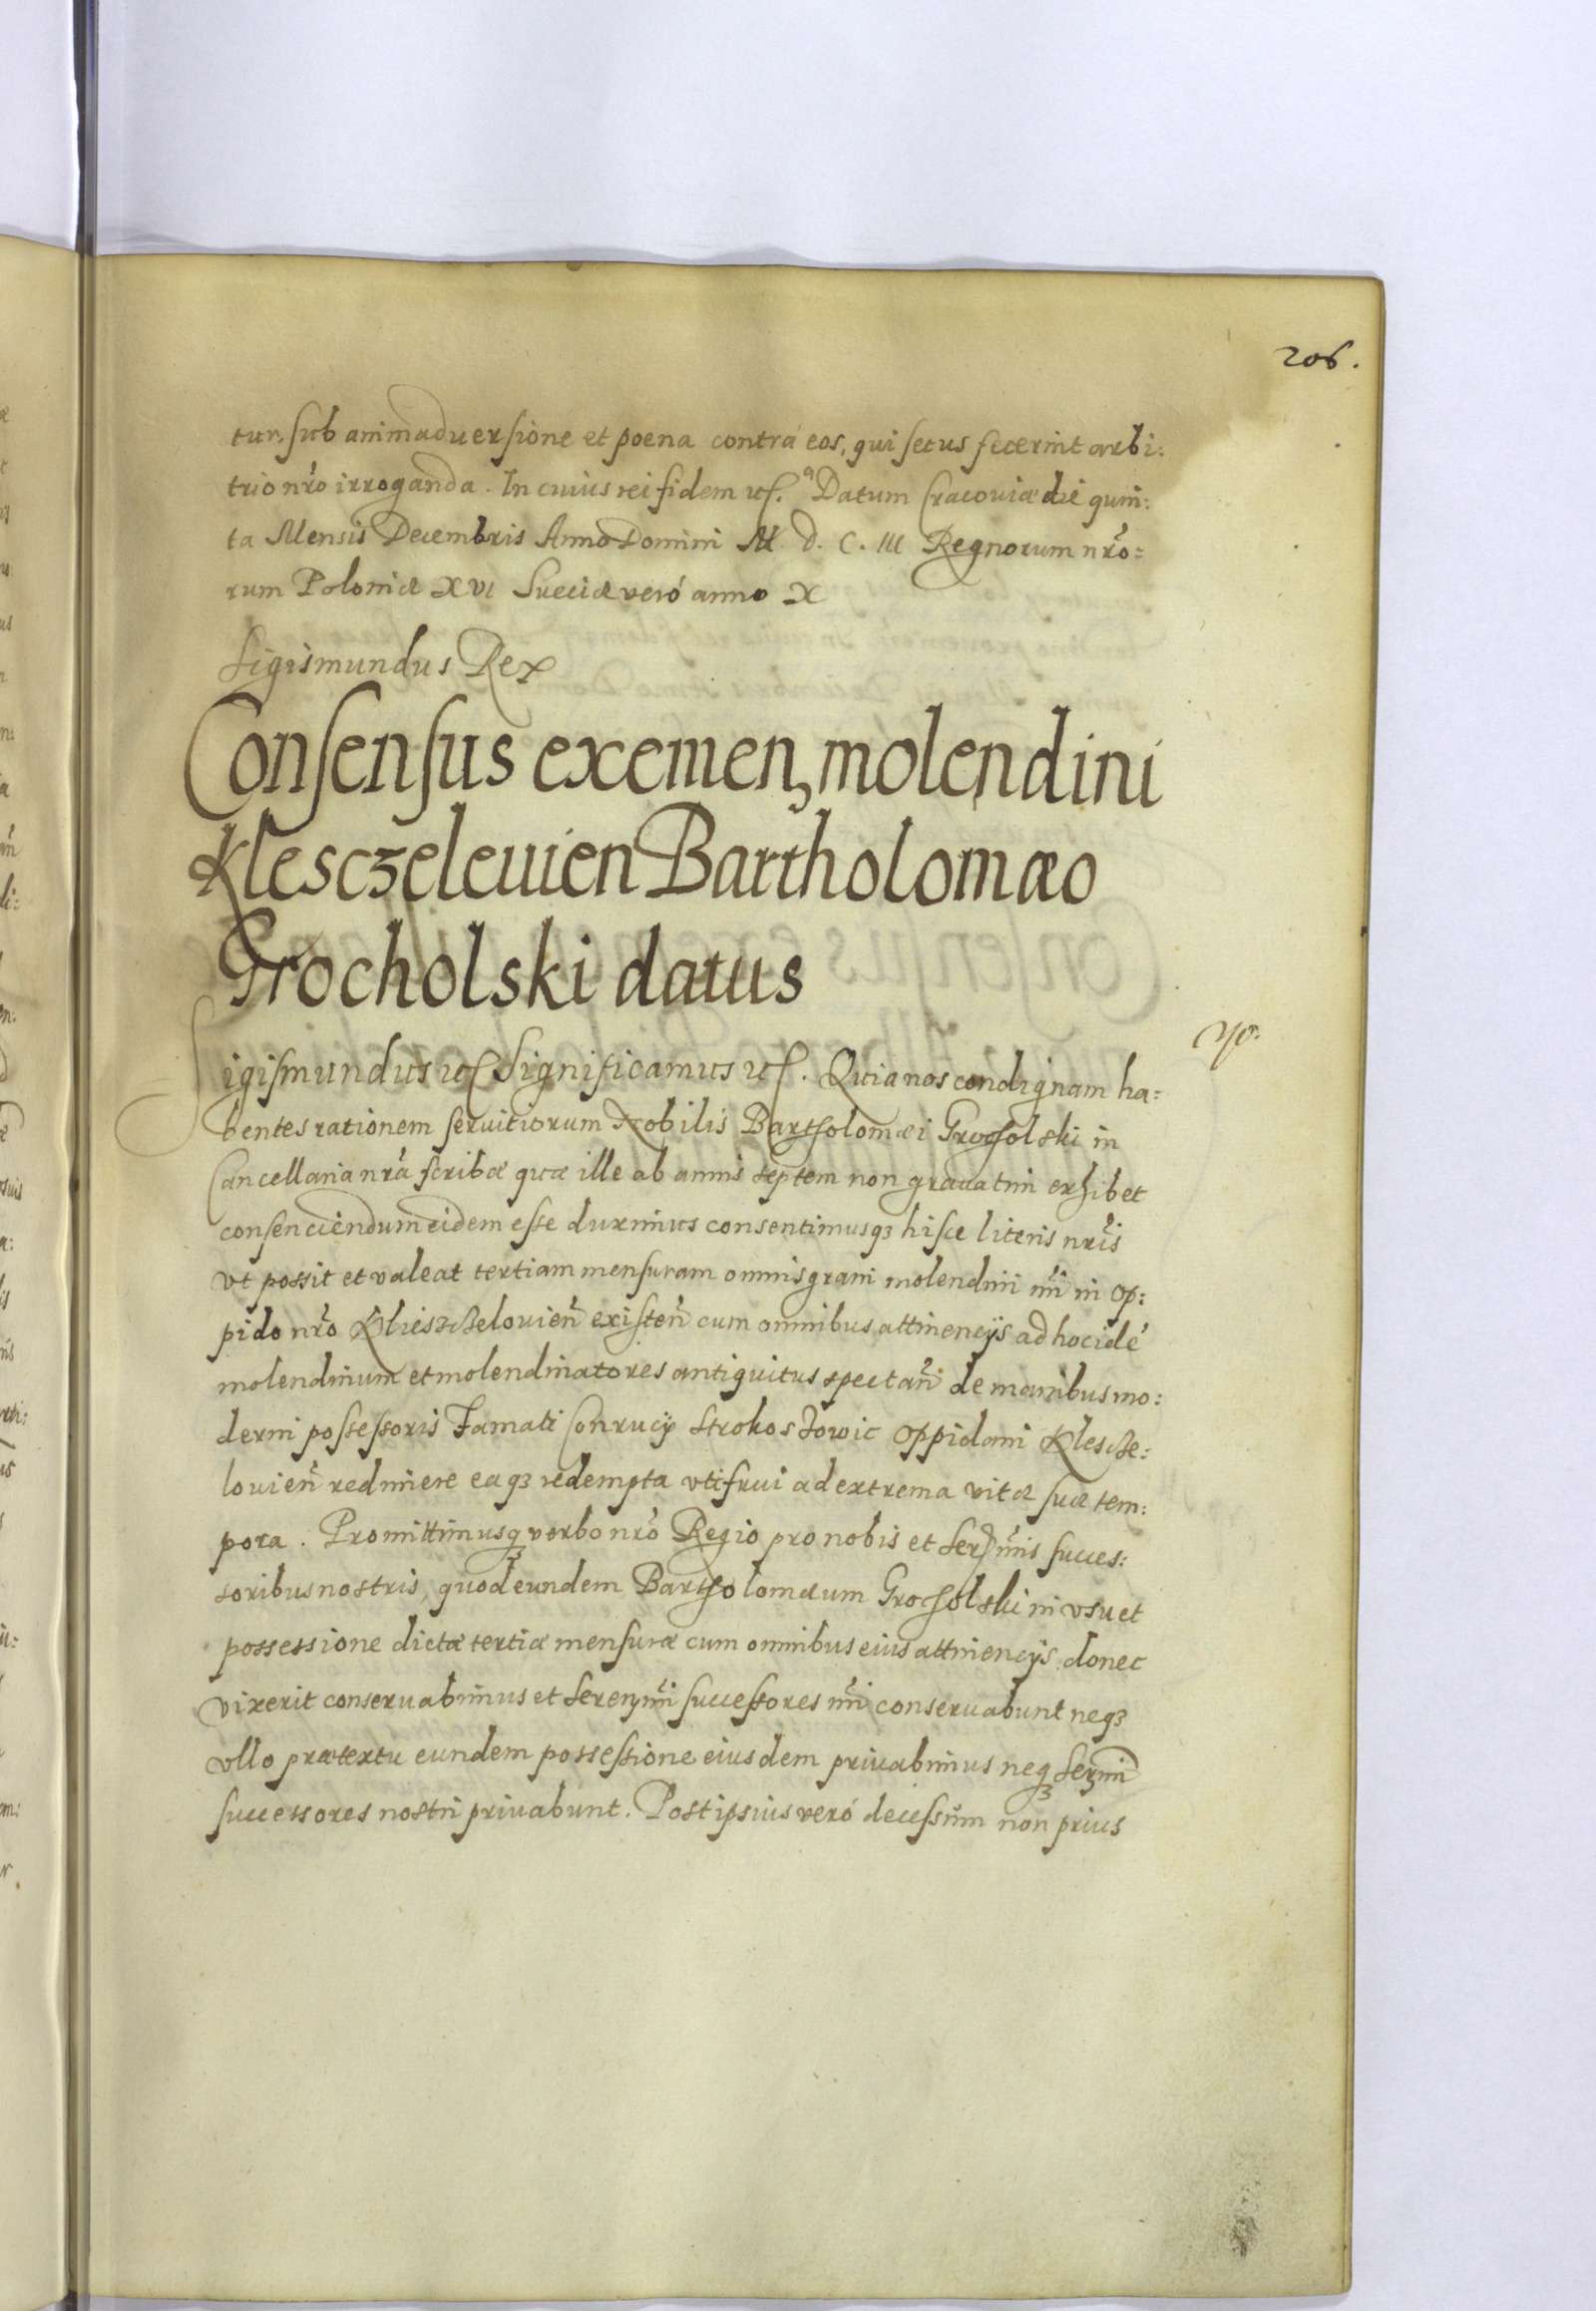 206.
tur, sub animaduersione et poena contrà eos, qui secus fecerint arbi:
trio nr̃o irroganda. In cuius rei fidem etc. Datum Cracouiæ die quin:
ta Mensis Decembris Anno Domini M. D. C. III Regnorum nr̃o=
rum Poloniæ XVI Sueciæ veró anno X
Sigismundus Rex
Consensus exemen, molendini
Klesczeleuien Bartholomæo
Grocholski datus
Sigismundus etc Significamus etc. Quia nos condignam ha=
bentes rationem seruitiorum Nobilis Bartholomæi Grocholski in
Cancellaria nr̃a scribæ quæ ille ab annis septem non grauatim exhibet
consenciendum eidem esse duximus consentimusqȝ hisce literis nr̃is
vt possit et valeat tertiam mensuram omnis grani molendini nr̃i in op:
pido nr̃o Klieszczelouien̄ existen̄ cum omnibus attinencijs ad hoc idē
molendinum et molendinatores antiquitus spectan̄ de manibus mo:
derni possessoris Famati Conrucy oppidani Klescze:
louien̄ redimere eaqȝ redempta vti frui ad extrema vitæ suæ tem:
pora. Promittimusqȝ verbo nr̃o Regio pro nobis et Serr̃mis succes:
soribus nostris, quod eundem Bartholomæum Grocholski in vsu et
possessione dictæ tertiæ mensuræ cum omnibus eius attinencijs donec
vixerit conseruabimus et Serenr̃mi successores nr̃i conseruabunt neqȝ
vllo prætextu eundem possessione eiusdem priuabimus neqȝ Serr̃mi
successores nostri priuabunt. Post ipsius veró decessum non prius